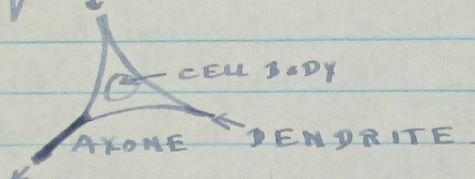 CELL BODY
AXONE
DENDRITE